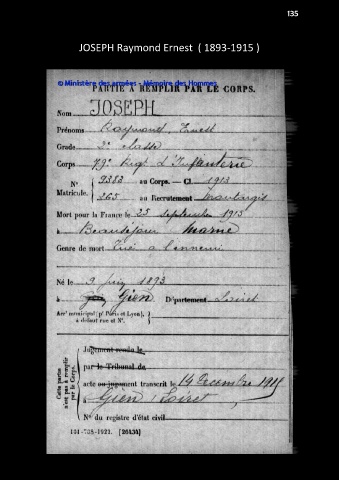 135
JOSEPH Raymond Ernest ( 1893-1915 )
© Ministère des armées - Mémoire des Hommes
PARTIE À REMPLIR PAR LE CORPS.
Nom JOSEPH
Prénoms Raymond, Ernest
Grade 2e classe
Corps 79e Regt d'Infanterie
N° 9383 au Corps. — Cl. 1913
Matricule. 265 au Recrutement Montargis
Mort pour la France le 25 septembre 1915
à Beauséjour Marne
Genre de mort Tué à l'ennemi
Né le 9 juin 1893
à Gien Département Loiret
Arrt municipal (pr Paris et Lyon),
à défaut rue et N°.
Cette partie n'est pas à remplir par le Corps.
Jugement rendu le
par le Tribunal de
acte ou jugement transcrit le 14 Décembre 1915
à Gien Loiret
N° du registre d'état civil
101-708-1922. [26434]